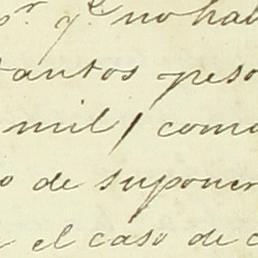 pr. qe. no hab
tantos peso
mil, como
o de suponer
el caso de c